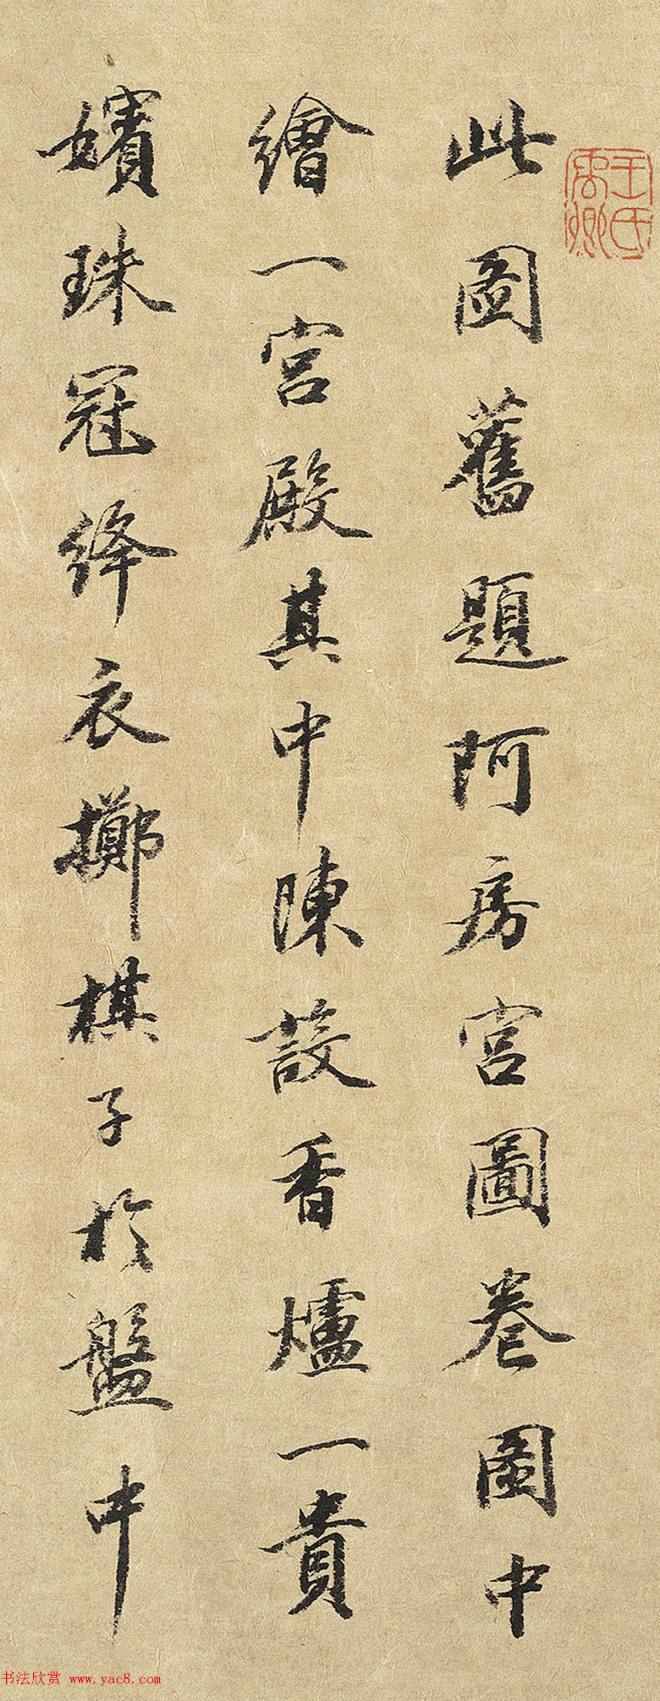 此圖舊題阿房宮圖卷圖中
繪一宮殿其中陳設香爐一貴
嬪珠冠絳衣擲棋子於盤中
王氏禹卿
书法欣赏 www.yac8.com